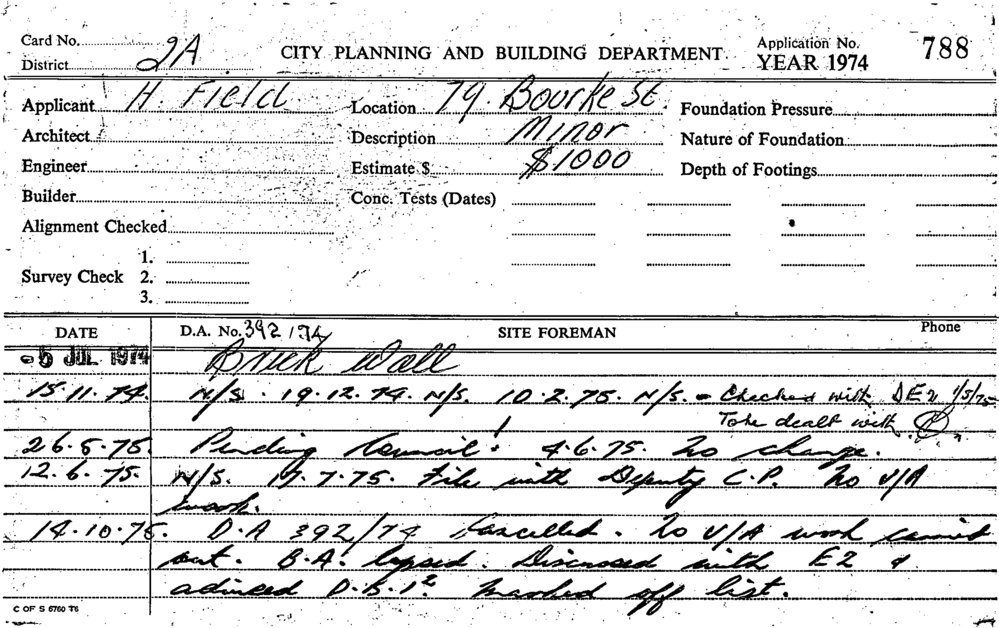 Card No.
District 2A CITY PLANNING AND BUILDING DEPARTMENT Application No. 788
YEAR 1974
Applicant H. Field Location 79 Bourke St. Foundation Pressure
Architect Description Minor Nature of Foundation
Engineer Estimate $ $1000 Depth of Footings
Builder Conc. Tests (Dates)
Alignment Checked
1.
Survey Check 2.
3.
DATE D.A. No. 392/74 SITE FOREMAN Phone
-5 JUL 1974 Brick Wall
15.11.74. N/S. 19.12.74. N/S. 10.2.75. N/S. - Checked with DE2 1/5/75
To be dealt with
26.5.75. Pending Council! 4.6.75. No change.
12.6.75. N/S. 17.7.75. File with Deputy C.P. No V/A
work.
14.10.75. D.A 392/74 Cancelled. No V/A work carried
out. B.A. lapsed. Discussed with E2 &
advised D.B.I. Marked off list.
C OF S 6760 T6